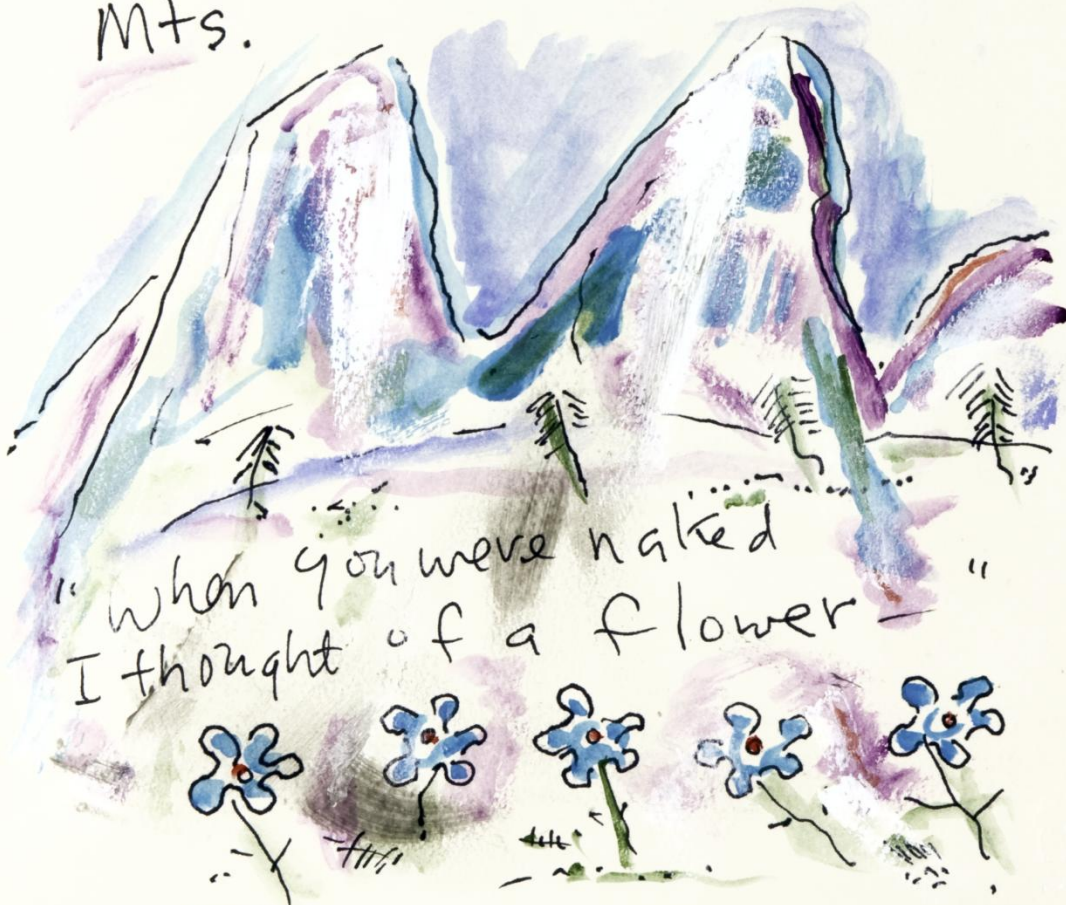 Mts.
"when you were naked "
I thought of a flower—